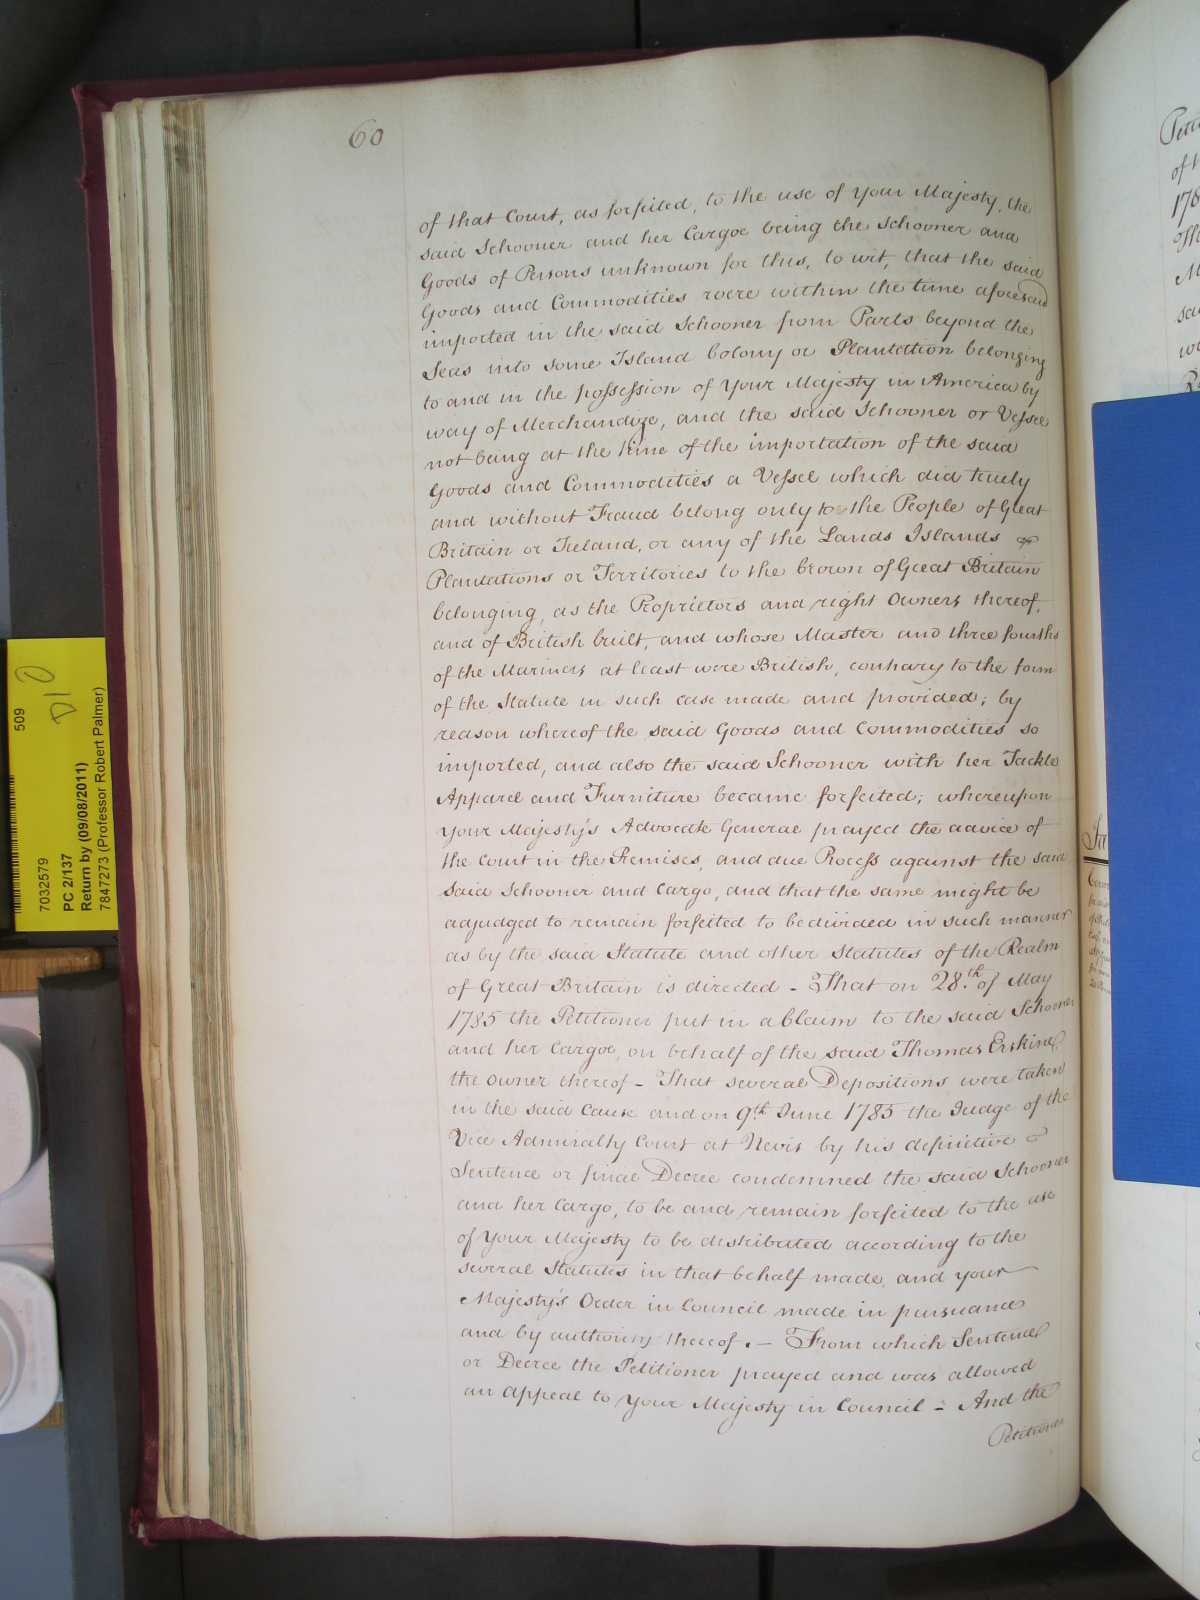 60
of that Court, as forfeited, to the use of Your Majesty, the
said Schooner and her Cargoe being the Schooner and
Goods of Persons unknown for this, to wit, that the said
Goods and Commodities were within the time aforesaid
imported in the said Schooner from Parts beyond the
Seas into some Island Colony or Plantation belonging
to and in the possession of Your Majesty in America by
way of Merchandize, and the said Schooner or Vessel
not being at the time of the importation of the said
Goods and Commodities a Vessel which did truly
and without Fraud belong only to the People of Great
Britain or Ireland, or any of the Lands Islands
Plantations or Territories to the Crown of Great Britain
belonging, as the Proprietors and right Owners thereof,
and of British built, and whose Master and three fourths
of the Mariners at least were British, contrary to the form
of the Statute in such case made and provided; by
reason whereof the said Goods and Commodities so
imported, and also the said Schooner with her Tackle
Apparel and Furniture became forfeited; whereupon
Your Majesty's Advocate General prayed the advice of
the Court in the Premises, and due Process against the said
said Schooner and Cargo, and that the same might be
adjudged to remain forfeited to be divided in such manner
as by the said Statute and other Statutes of the Realm
of Great Britain is directed - That on 28.th of May
1785 the Petitioner put in a Claim to the said Schooner
and her Cargoe, on behalf of the said Thomas Erskine
the Owner thereof - That several Depositions were taken
in the said Cause and on 9th June 1785 the Judge of the
Vice Admiralty Court at Nevis by his definitive
Sentence or final Decree condemned the said Schooner
and her Cargo, to be and remain forfeited to the use
of Your Majesty to be distributed according to the
several Statutes in that behalf made, and your
Majesty's Order in Council made in pursuance
and by authority thereof. - From which Sentence
or Decree the Petitioner prayed and was allowed
an Appeal to Your Majesty in Council - And the
Petitioner
509
D10
7032579
PC 2/137
Return by (09/08/2011)
7847273 (Professor Robert Palmer)